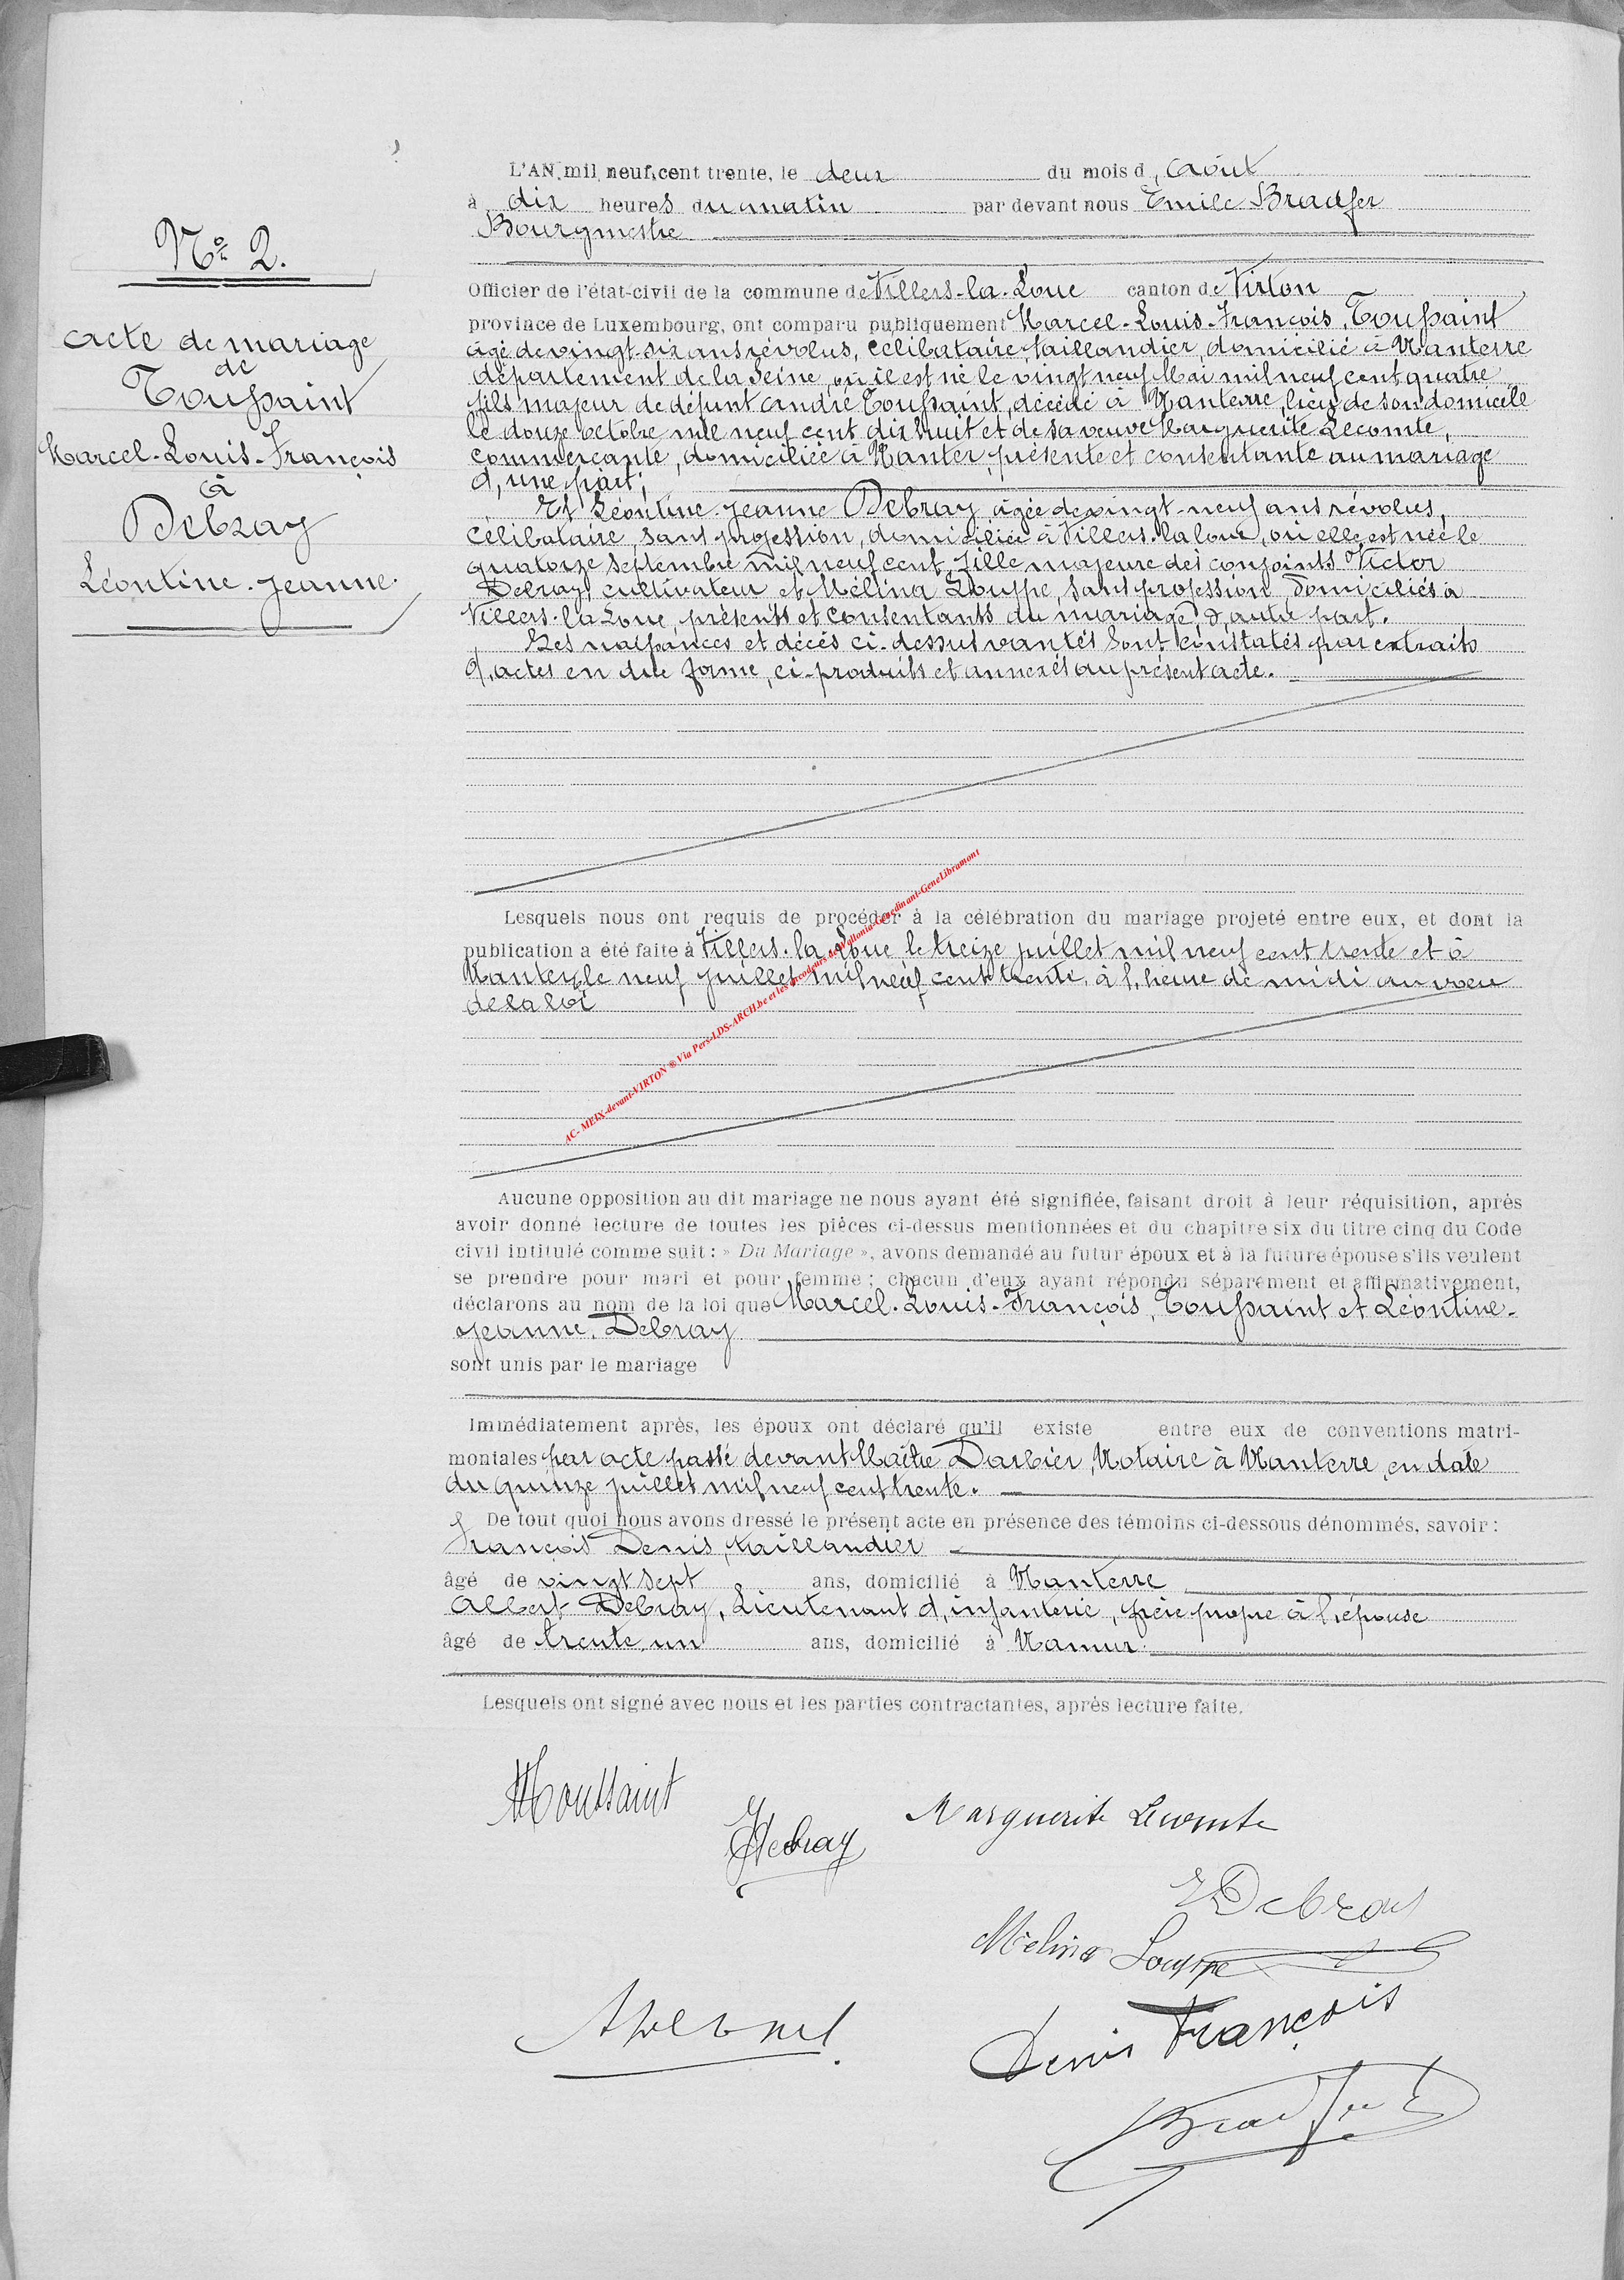 L'AN mil neuf cent trente, le deux du mois d, août
à dix heures du matin par devant nous Emile Bradfer
Bourgmestre
Nº 2.
Officier de l'état-civil de la commune de Villers-la-Loue canton de Virton
province de Luxembourg, ont comparu publiquement Marcel-Louis-François, Toussaint
âgé de vingt-six ans révolus, célibataire, taillandier, domicilié à Nanterre
département de la Seine où il est né le vingt neuf Mai mil neuf cent quatre
fils majeur de défunt André Toussaint, décédé à Nanterre, lieu de son domicile
le douze octobre mil neuf cent dix huit et de sa veuve Marguerite Lecomte,
commerçante, domiciliée à Nanter, présente et consentante au mariage
d, une part;
Et Léontine-Jeanne Debray, âgée de vingt-neuf ans révolus,
célibataire, sans profession, domiciliée à Villers-la loue, où elle est née le
quatorze septembre mil neuf cent, fille majeure des conjoints Victor
Debray, cultivateur et Mélina Louppe, sans profession, domiciliés à
Villers-la-Loue, présents et consentants au mariage d, autre part.
Les naissances et décès ci-dessus vantés sont constatés par extraits
d, actes en due forme, ci-produits et annexés au présent acte.
Acte de mariage
de
Toussaint
Marcel-Louis-François
à
Debray
Léontine-Jeanne.
Lesquels nous ont requis de procéder à la célébration du mariage projeté entre eux, et dont la
publication a été faite à Villers-la-Loue le treize juillet mil neuf cent trente et à
Nanter, le neuf juillet mil neuf cent trente, à l, heure de midi au vœu
de la loi
AC- MEIX-devant-VIRTON ® Via Pers-LDS-ARCH.be et les encodeurs de Wallonia-Genedinant-GeneLibramont
Aucune opposition au dit mariage ne nous ayant été signifiée, faisant droit à leur réquisition, après
avoir donné lecture de toutes les pièces ci-dessus mentionnées et du chapitre six du titre cinq du Code
civil intitulé comme suit : » Du Mariage », avons demandé au futur époux et à la future épouse s'ils veulent
se prendre pour mari et pour femme ; chacun d'eux ayant répondu séparément et affirmativement,
déclarons au nom de la loi que Marcel-Louis-François, Toussaint et Léontine-
Jeanne, Debray
sont unis par le mariage
Immédiatement après, les époux ont déclaré qu'il existe entre eux de conventions matri-
moniales par acte passé devant Maître Darbier, Notaire à Nanterre, en date
du quinze juillet mil neuf cent trente.
De tout quoi nous avons dressé le présent acte en présence des témoins ci-dessous dénommés, savoir :
François Denis, taillandier
âgé de vingt sept ans, domicilié à Nanterre
Albert Debray, Lieutenant d, infanterie, frère propre à l'épouse
âgé de trente un ans, domicilié à Namur.
Lesquels ont signé avec nous et les parties contractantes, après lecture faite.
MToussaint
Debray
Marguerite Lecomte
Debray
Mélina Louppe
Denis François
Bradfer